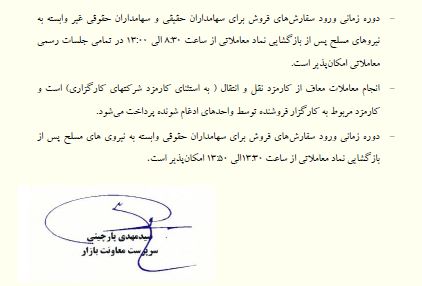 - دوره زمانی ورود سفارش‌های فروش برای سهامداران حقیقی و سهامداران حقوقی غیر وابسته به
نیروهای مسلح پس از بازگشایی نماد معاملاتی از ساعت ۸:۳۰ الی ۱۳:۰۰ در تمامی جلسات رسمی
معاملاتی امکان‌پذیر است.
- انجام معاملات معاف از کارمزد نقل و انتقال ( به استثنای کارمزد شرکتهای کارگزاری) است و
کارمزد مربوط به کارگزار فروشنده توسط واحدهای ادغام شونده پرداخت می‌شود.
- دوره زمانی ورود سفارش‌های فروش برای سهامداران حقوقی وابسته به نیروی های مسلح پس از
بازگشایی نماد معاملاتی از ساعت ۱۳:۳۰الی ۱۳:۵۰ امکان‌پذیر است.
سیدمهدی پارچینی
سرپرست معاونت بازار